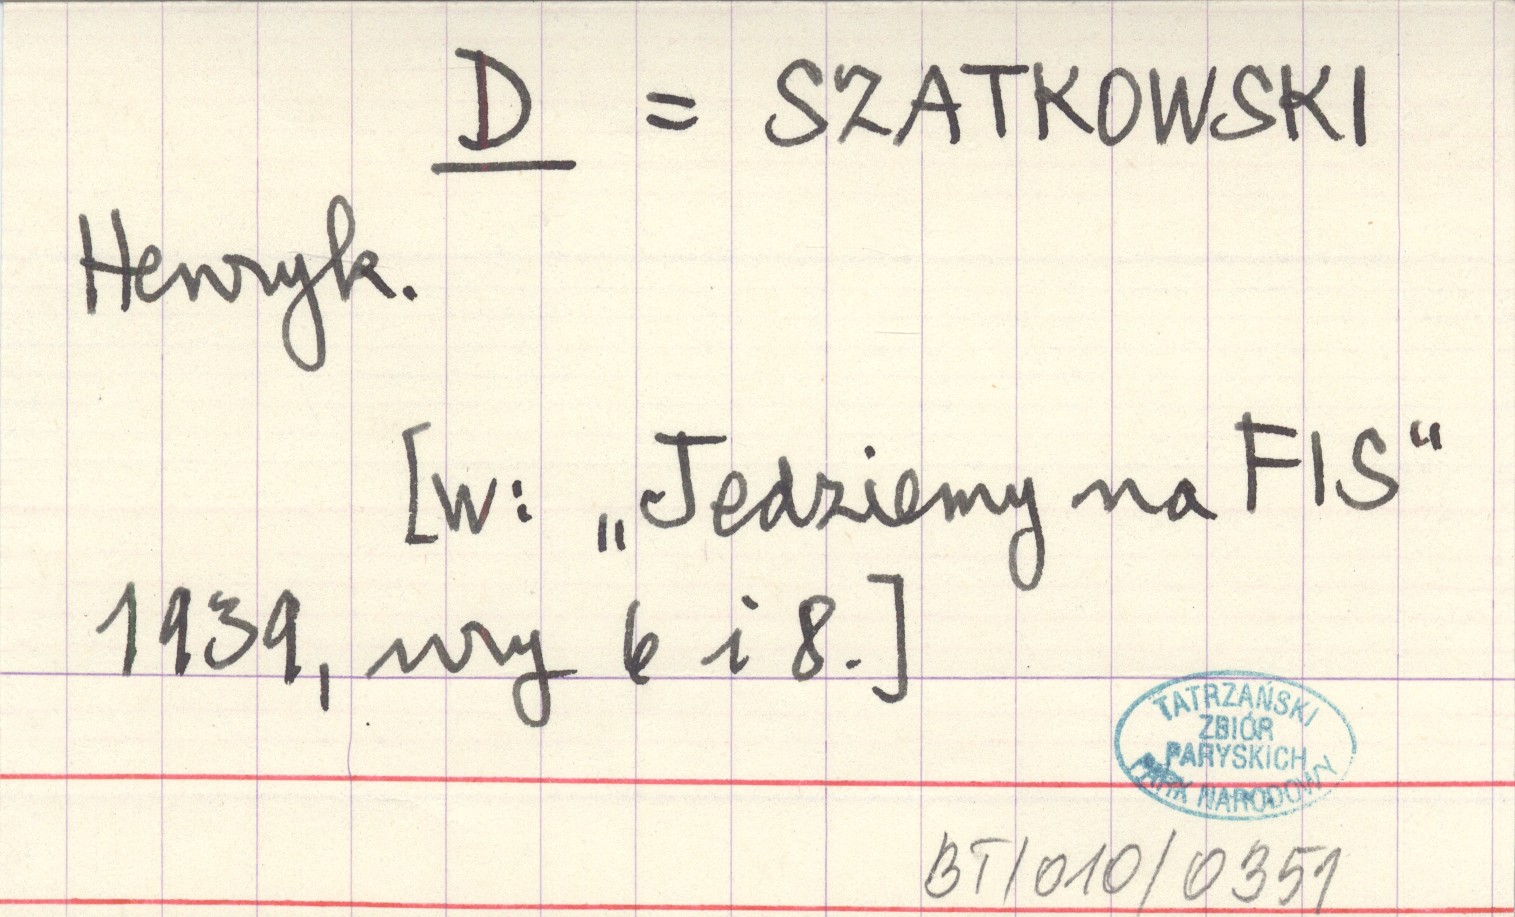 D = SZATKOWSKI
Henryk.
[w: „Jedziemy na FIS“
1939, nry 6 i 8.]
TATRZAŃSKI
ZBIÓR
PARYSKICH
PARK NARODOWY
BT/010/0351